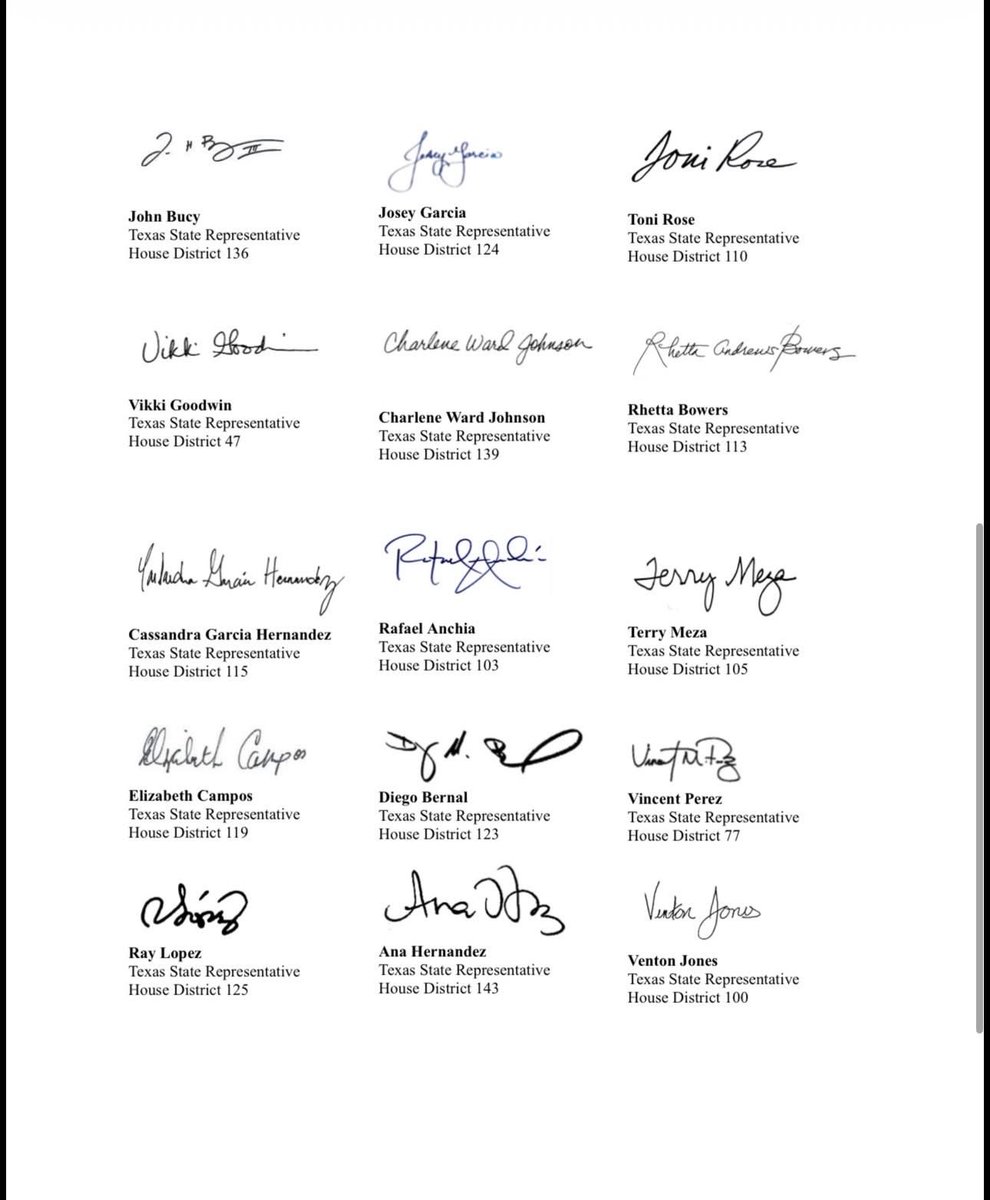 J. H B III
Josey Garcia
Toni Rose
John Bucy
Texas State Representative
House District 136
Josey Garcia
Texas State Representative
House District 124
Toni Rose
Texas State Representative
House District 110
Vikki Goodwin
Charlene Ward Johnson
Rhetta Andrews Bowers
Vikki Goodwin
Texas State Representative
House District 47
Charlene Ward Johnson
Texas State Representative
House District 139
Rhetta Bowers
Texas State Representative
House District 113
Garcia Hernandez
Terry Meza
Cassandra Garcia Hernandez
Texas State Representative
House District 115
Rafael Anchia
Texas State Representative
House District 103
Terry Meza
Texas State Representative
House District 105
Elizabeth Campos
Elizabeth Campos
Texas State Representative
House District 119
Diego Bernal
Texas State Representative
House District 123
Vincent Perez
Texas State Representative
House District 77
Ana
Venton Jones
Ray Lopez
Texas State Representative
House District 125
Ana Hernandez
Texas State Representative
House District 143
Venton Jones
Texas State Representative
House District 100